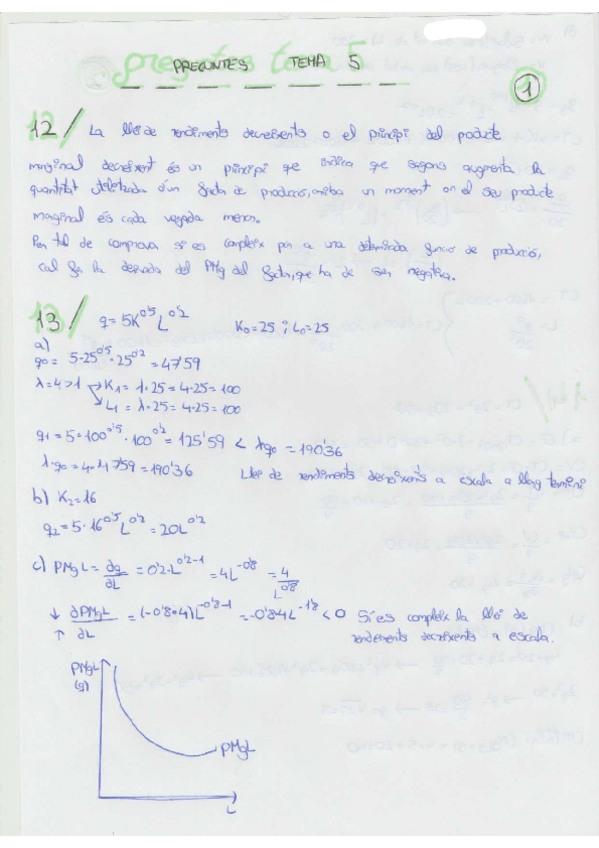 preguntes tema 5
PREGUNTES TEMA 5
1
12/ La llei de rendiments decreixents o el principi del producte
marginal decreixent és un principi que indica que segons augmenta la
quantitat utilitzada d'un factor de producció, arriba un moment on el seu producte
marginal és cada vegada menor.
Per tal de comprovar si es compleix per a una determinada funció de producció,
cal fer la derivada del PMg del factor, que ha de ser negativa.
13/ q = 5K^0'5 L^0'2 K0 = 25 i L0 = 25
a)
q0 = 5·25^0'5·25^0'2 = 47'59
λ = 4 > 1 → K1 = λ·25 = 4·25 = 100
→ L1 = λ·25 = 4·25 = 100
q1 = 5·100^0'5·100^0'2 = 125'59 < λq0 = 190'36
λ·q0 = 4·47'59 = 190'36 Llei de rendiments decreixents a escala a llarg termini
b) K2 = 16
q2 = 5·16^0'5 L^0'2 = 20L^0'2
c) PMgL = ∂q/∂L = 0'2·L^0'2-1 = 4L^-0'8 = 4/L^0'8
↓ ∂PMgL / ↑ ∂L = (-0'8·4)L^-0'8-1 = -0'84L^-1'8 < 0 Sí es compleix la llei de
rendiments decreixents a escala.
PMgL
(q)
PMgL
L